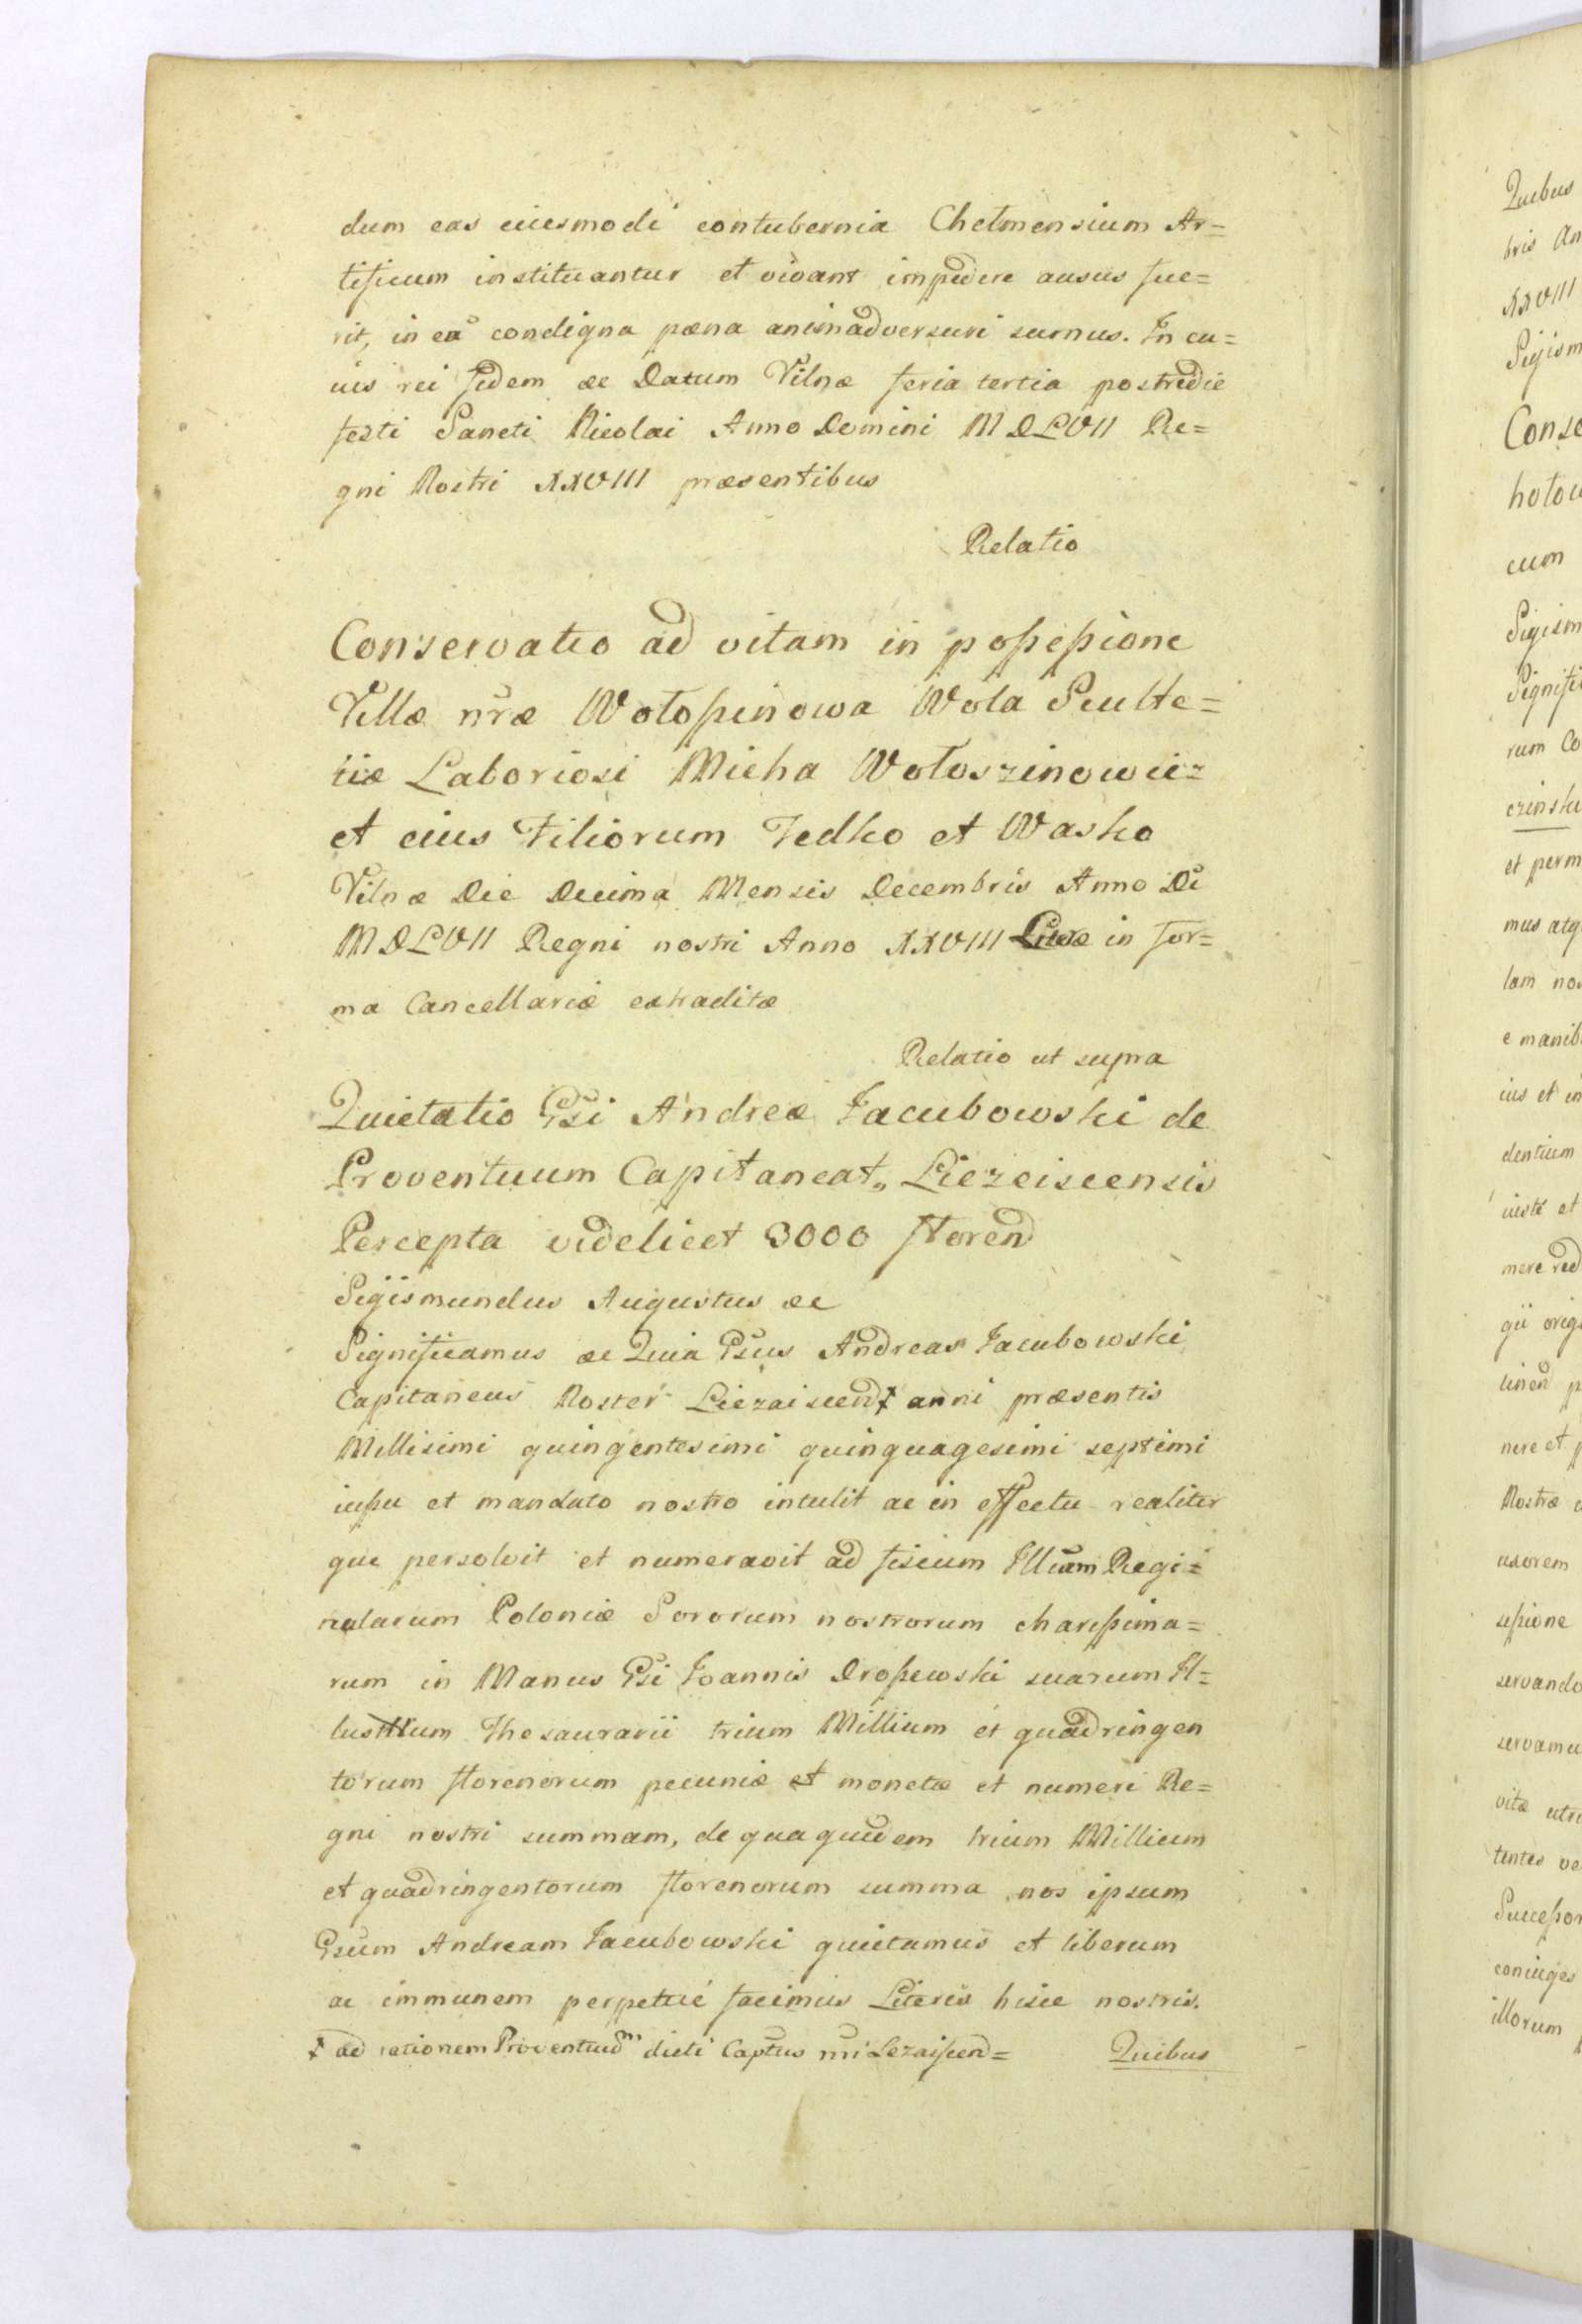 dum eas eiiesmodi contubernia Chelmensium Ar=
tificum instituantur et vivant impedire ausus fue=
rit, in eu condigna pæna animadversuri sumus. In cu=
ius rei fidem ac Datum Vilnæ feria tertia postridie
festi Sancti Nicolai Anno Domini MDLVII Re=
gni Nostri XXVIII præsentibus
Relatio
Conservatio ad vitam in poßeßione
Villæ nræ Wołoßinowa Wola Sculte=
tiæ Laboriosi Micha Wołoszinowicz
et eius Filiorum Fedko et Wasko
Vilnæ Die Decima Mensis Decembris Anno Di
MDLVII Regni nostri Anno XXVIII Literæ in for=
ma Cancellariæ extraditæ
Relatio ut supra
Quietatio Gsi Andreæ Jacubowski de
Proventuum Capitaneat„ Liezeiscensis
Percepta videlicet 3000 floren
Sigismundus Augustus ac
Significamus ac Quia Gsus Andreas Jacubowski
Capitaneus Noster Liezaiscen ✝ anni præsentis
Millisimi quingentesimi quinquagesimi septimi
iußu et mandato nostro intulit ac in effectu realiter
que persolvit et numeravit ad fiscum Illum Regi=
nalarum Poloniæ Sororum nostrorum charißima=
rum in Manus Gsi Joannis Droßewski suarum Il=
lustrium Thesaurarii trium Millium et quadringen
torum florenorum pecuniæ et monetæ et numeri Re=
gni nostri summam, de qua quidem trium Millium
et quadringentorum florenorum summa nos ipsum
Gsum Andream Jacubowski quietamus et liberum
ac immunem perpetué facimus Literis hisce nostris.
✝ ad rationem Proventuum dicti Captus nri Lezaißcen=
Quibus